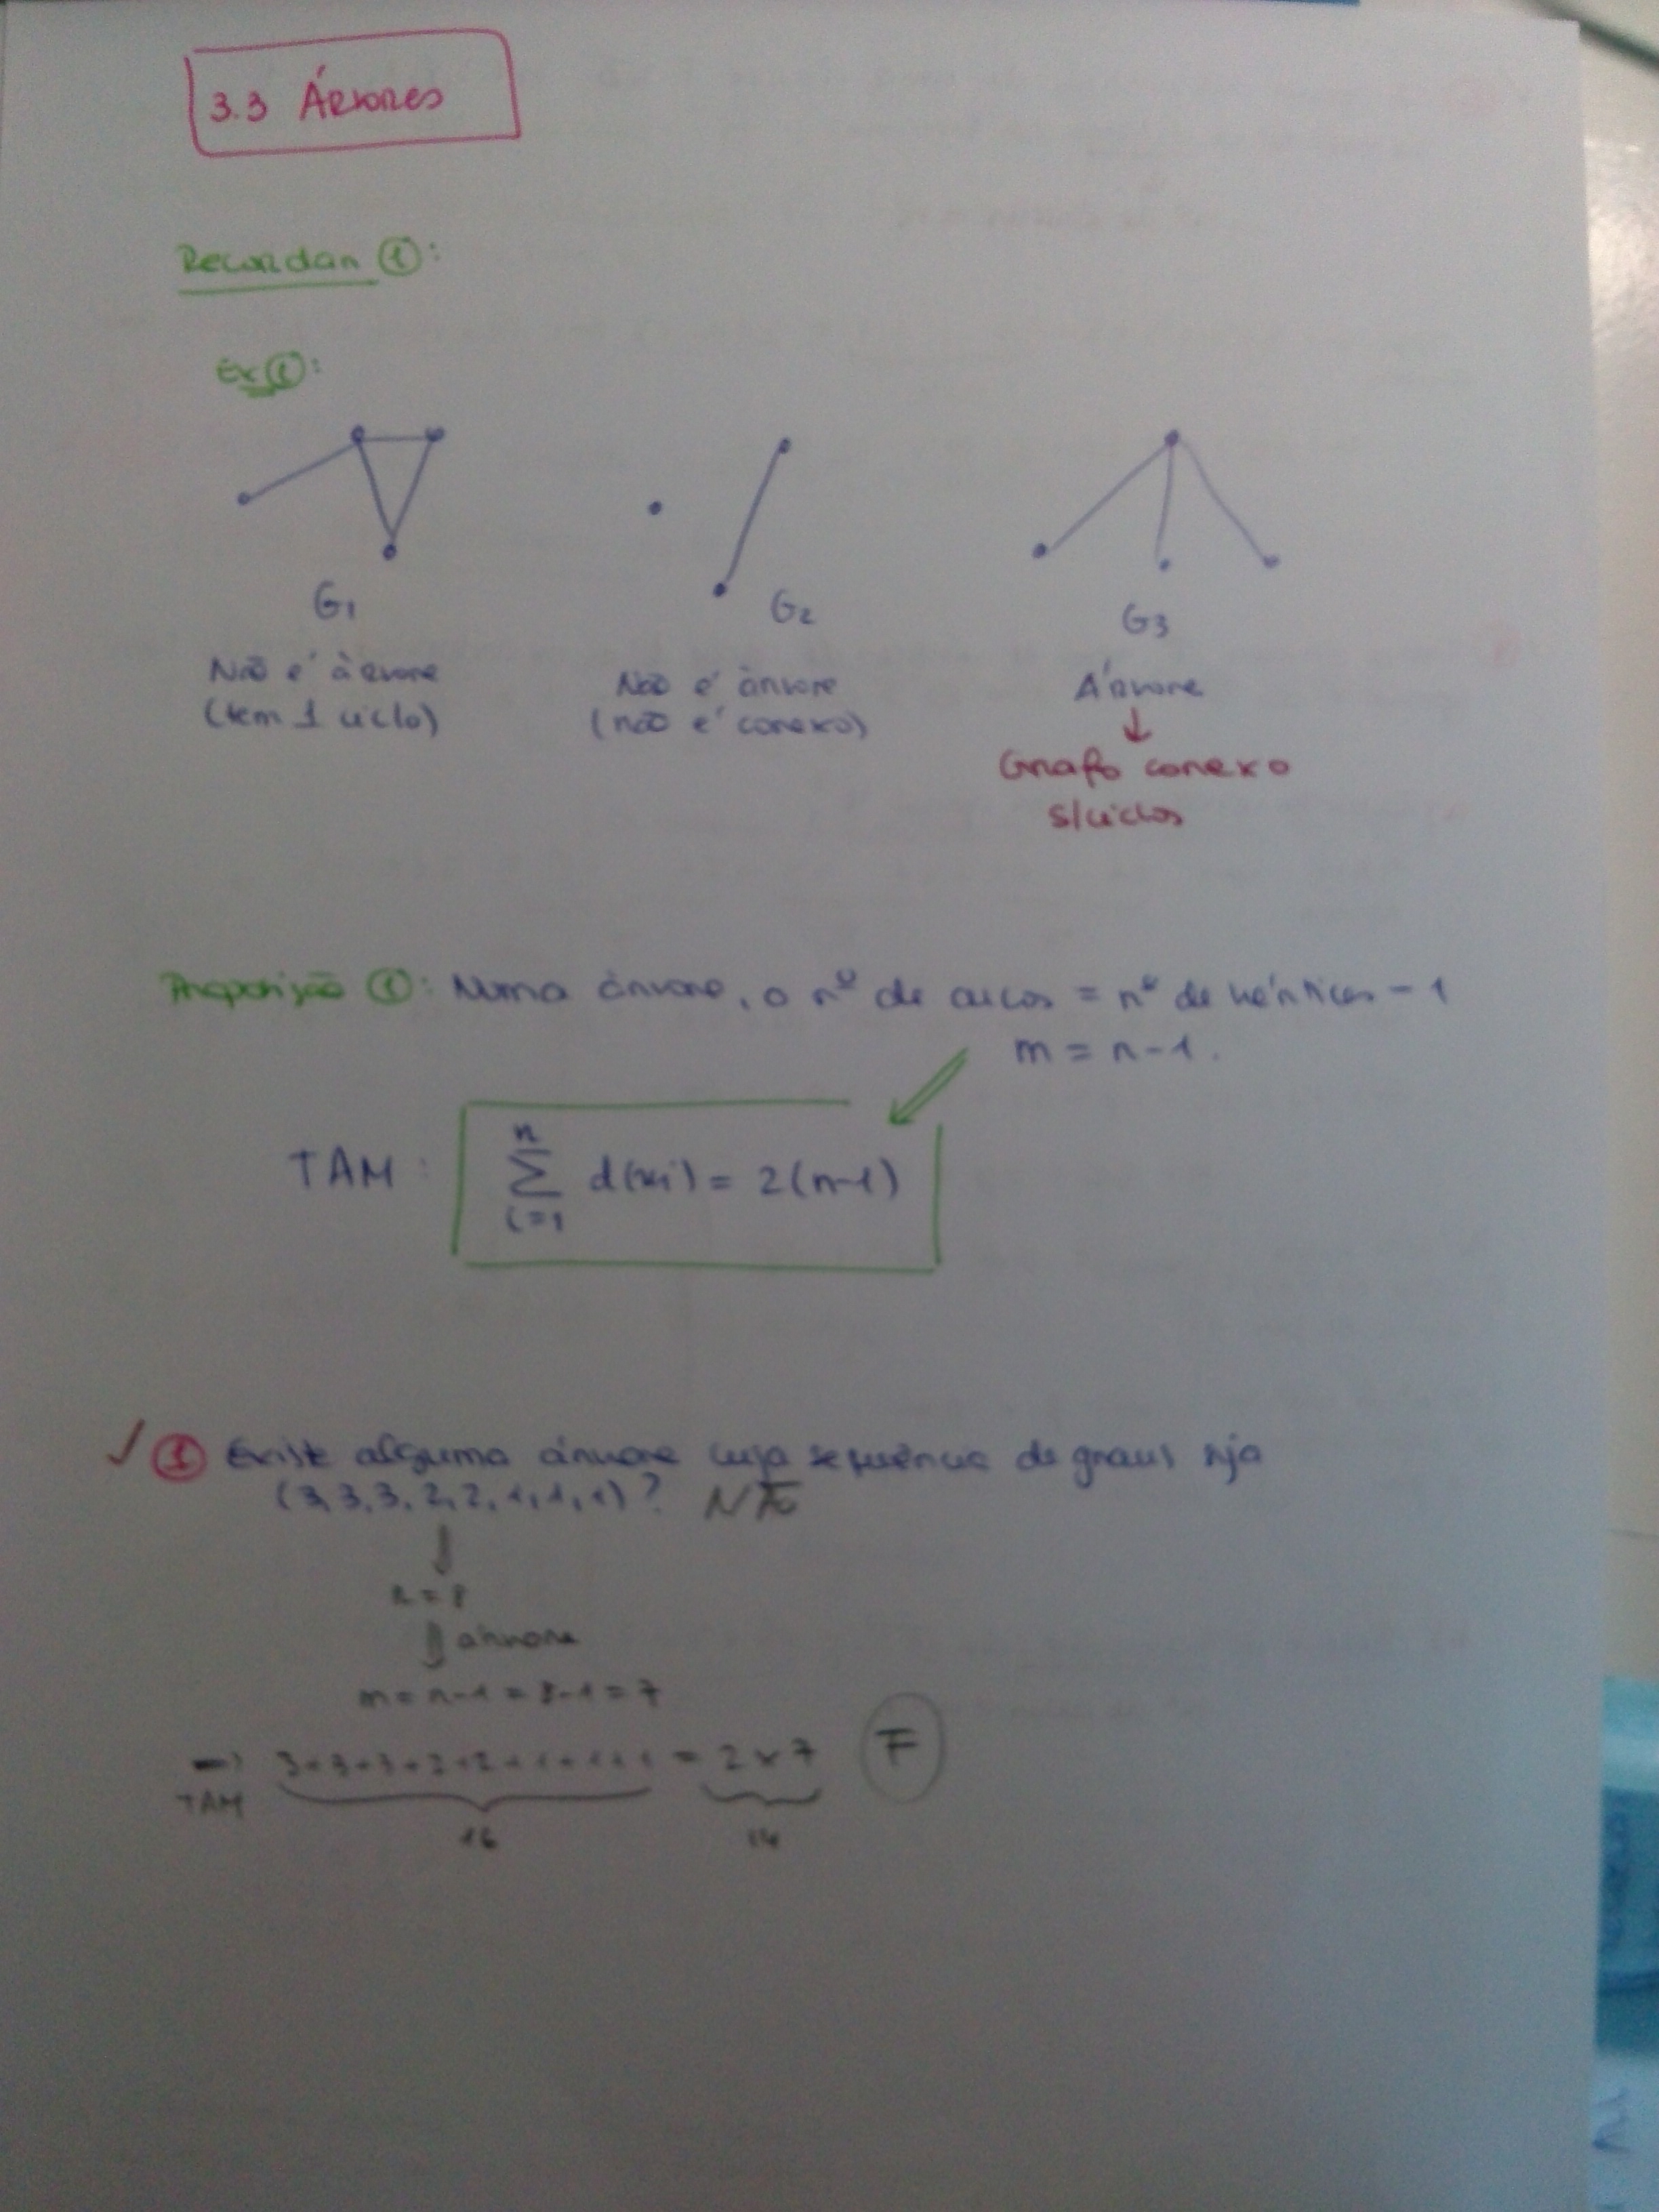 3.3 Árvores
Recordar ①:
Ex①:
G1
G2
G3
Não é àrvore
(tem 1 ciclo)
Não é àrvore
(não é conexo)
Árvore
↓
Grafo conexo
s/ciclos
Proposição ①: Numa àrvore, o nº de arcos = nº de vértices - 1
m = n-1.
TAM: n∑i=1 d(xi) = 2(n-1)
✓ ① Existe alguma árvore cuja sequência de graus seja
(3,3,3,2,2,1,1,1)? NÃO
⇓
n = 8
⇓ árvore
m = n-1 = 8-1 = 7
⇒ 3+3+3+2+2+1+1+1 = 2×7 F
TAM
16 14